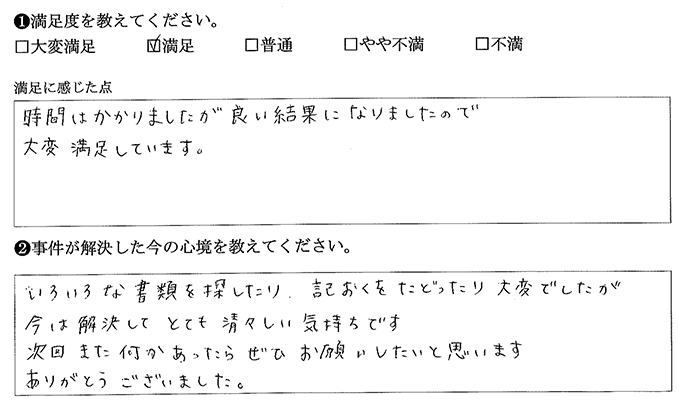 ❶満足度を教えてください。
□大変満足 ☑満足 □普通 □やや不満 □不満
満足に感じた点
時間はかかりましたが良い結果になりましたので
大変満足しています。
❷事件が解決した今の心境を教えてください。
いろいろな書類を探したり、記おくをたどったり大変でしたが
今は解決してとても清々しい気持ちです
次回また何かあったらぜひお願いしたいと思います
ありがとうございました。